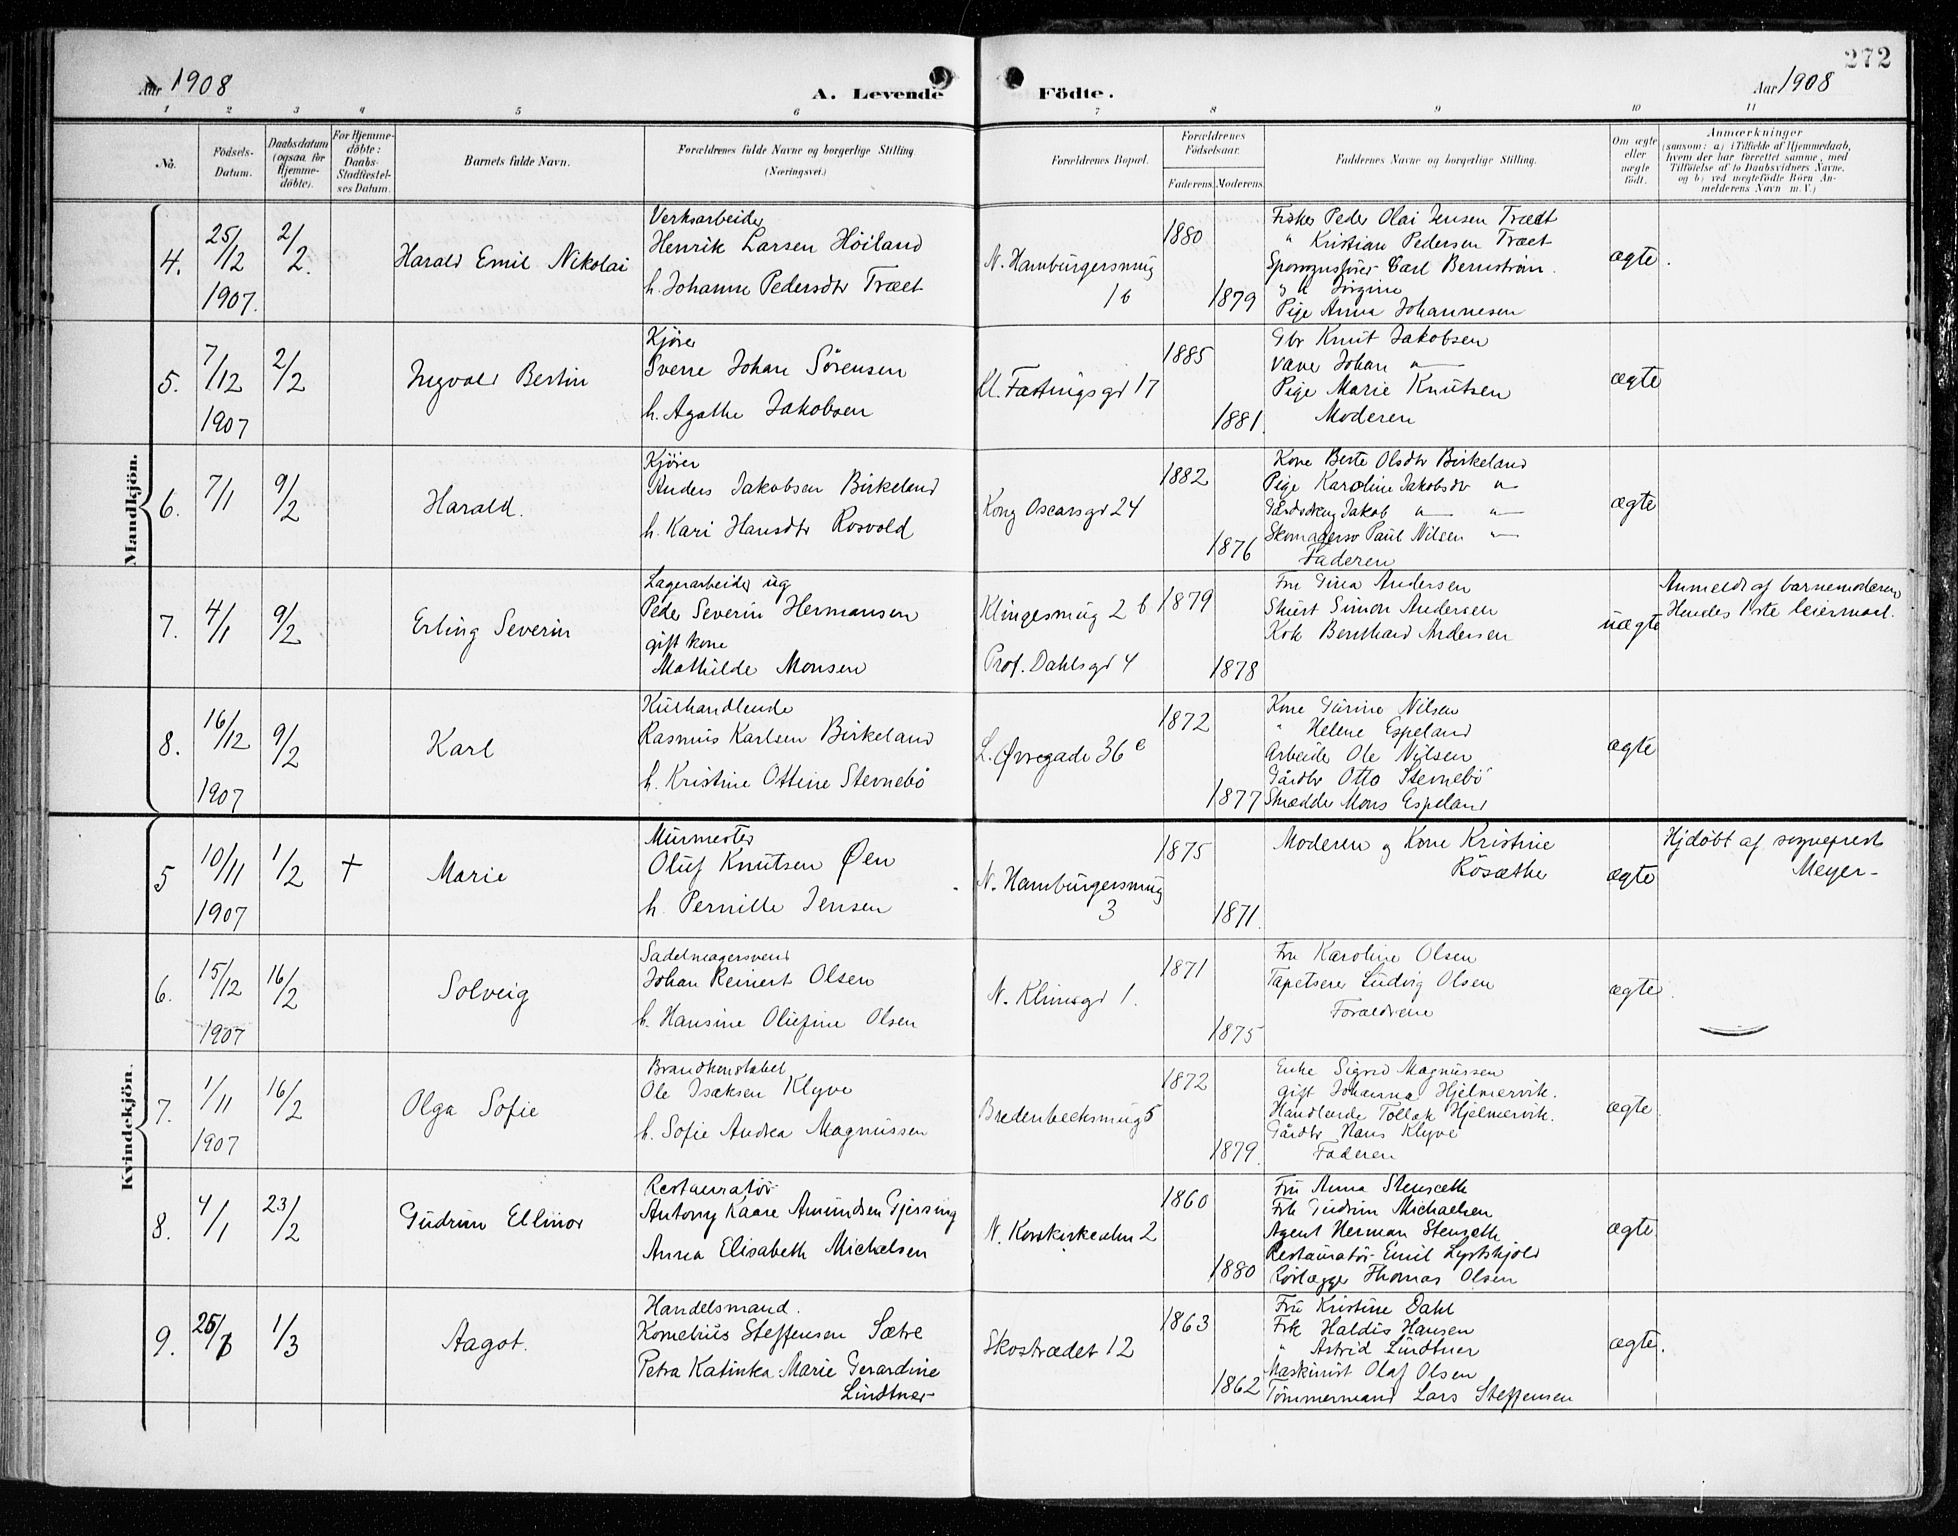 272
Aar 1908
A. Levende Födte.
Aar 1908
1 2 3 4 5 6 7 8 9 10 11
No.
Födsels-Datum.
Daabsdatum (ogsaa for Hjemmedöbte).
For Hjemmedöbte: Daabs-Stadfæstelses Datum.
Barnets fulde Navn.
Forældrenes fulde Navne og borgerlige Stilling (Næringsvei.)
Forældrenes Bopæl.
Forældrenes Födselsaar.
Faderens. Moderens.
Faddernes Navne og borgerlige Stilling.
Om ægte eller uægte födt.
Anmærkninger
(saasom: a) i Tilfælde af Hjemmedaab, hvem der har forrettet samme, med Tilföielse af to Daabsvidners Navne. og b) ved uægtefödte Börn Anmelderens Navn m. V.)
Mandkjön.
4.
25/12
1907.
2/2.
Harald Emil Nikolai
Verksarbeider
Henrik Larsen Höiland
h. Johanne Pedersdtr Træet
N. Hamburgersmug
16
1880
1879
Fisker Peder Olai Jensen Træet
" Kristian Pedersen Træet
Carl Bernström.
" h Jörgine
Pige Anna Johannesen
ægte.
5.
7/12
1907
2/2
Ingvald Bertin
Kjörer
Sverre Johan Sörensen
h. Agathe Jakobsen
Kl. Fattingsgd 17
1885
1881.
Gbr Knut Jakobsen
Væver Johan "
Pige Marie Knutsen
Moderen
ægte
6.
7/1
9/2
Harald.
Kjörer
Anders Jakobsen Birkeland
h. Kari Hansdtr Rosvold
Kong Oscarsgd 24
1882
1876
Kone Berte Olsdtr Birkeland
Pige Karoline Jakobsdtr "
Gårddreng Jakob " "
Skomagersv Paul Nilsen "
Faderen
ægte
7.
4/1
9/2
Erling Severin
Lagerarbeider ug
Peder Severin Hermansen
gift kone
Mathilde Monsen
Klingesmug 2 b
Prof. Dahlsgd 4
1879
1878
Fru Gina Andersen
Simon Andersen
Kok Bernthard Andersen
uægte
Anmeldt af barnemoderen
Hendes 1ste leiermaal.
8.
16/12
1907
9/2
Karl
Kulhandlende
Rasmus Karlsen Birkeland
h. Kristine Ottine Stevnebö
L. Øvregade 36 c
1872
1877
Kone Gurine Nilsen
" Helene Espeland
Arbeider Ole Nilsen
Gårdbr Otto Stevnebö
Skrædder Mons Espeland
ægte
Kvindekjön.
5
10/11
1907
1/2
+
Marie
Murmester
Oluf Knutsen Øen
h. Pernille Jensen
N. Hamburgersmug
3
1875
1871.
Moderen og Kone Kristine
Rösæthe
ægte
Hjdöbt af sogneprest
Meyer-
6.
15/12
1907
16/2
Solveig
Sadelmagersvend
Johan Reinert Olsen
h. Hansine Olufine Olsen
N. Klinesgd 1.
1871
1875
Fru Karoline Olsen
Tapetserer Ludvig Olsen
Forældrene
ægte.
7.
1/11
1907
16/2
Olga Sofie
Brandkonstabel
Ole Isaksen Klyve
h. Sofie Andrea Magnussen
Bredenbecksmug 5
1872
1879.
Enke Sigrid Magnussen
gift Johanna Hjelmervik.
Handlende Tollak Hjelmervik.
Gårdbr Hans Klyve
Faderen
ægte.
8.
4/1
23/2
Gudrun Ellinor
Restauratör
Antony Kaare Amundsen Gjersing
Anna Elisabeth Michelsen
N. Korskirkealm 2
1860
1880
Fru Anna Stenseth
Frk Gudrun Michaelsen
Agent Herman Stenseth
Restauratör Emil Lystskjold
Rörlægger Thomas Olsen
ægte.
9.
1/3
Aagot.
Handelsmand.
Kornelius Steffensen Sætre
Petra Katinka Marie Gerardine
Lindtner
Skostrædet 12
1863
1862
Fru Kristine Dahl
Frk Haldis Hansen
" Astrid Lindtner
Maskinist Olaf Olsen
Tömmermand Lars Steffensen
ægte.